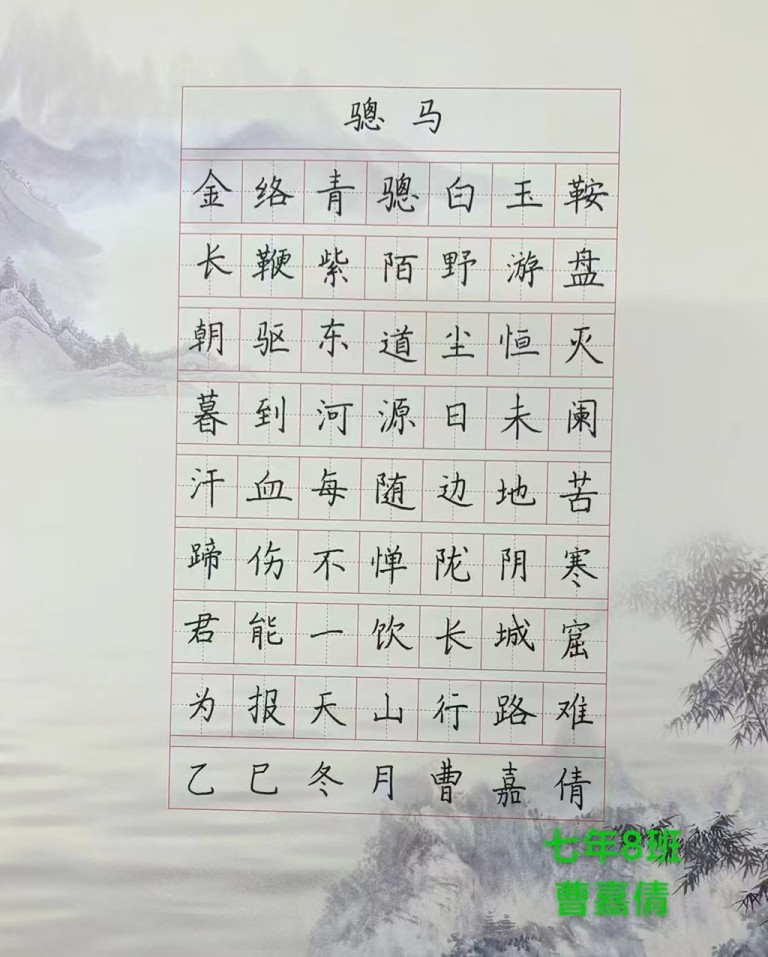 骢马
金络青骢白玉鞍
长鞭紫陌野游盘
朝驱东道尘恒灭
暮到河源日未阑
汗血每随边地苦
蹄伤不惮陇阴寒
君能一饮长城窟
为报天山行路难
乙巳冬月曹嘉倩
七年8班
曹嘉倩